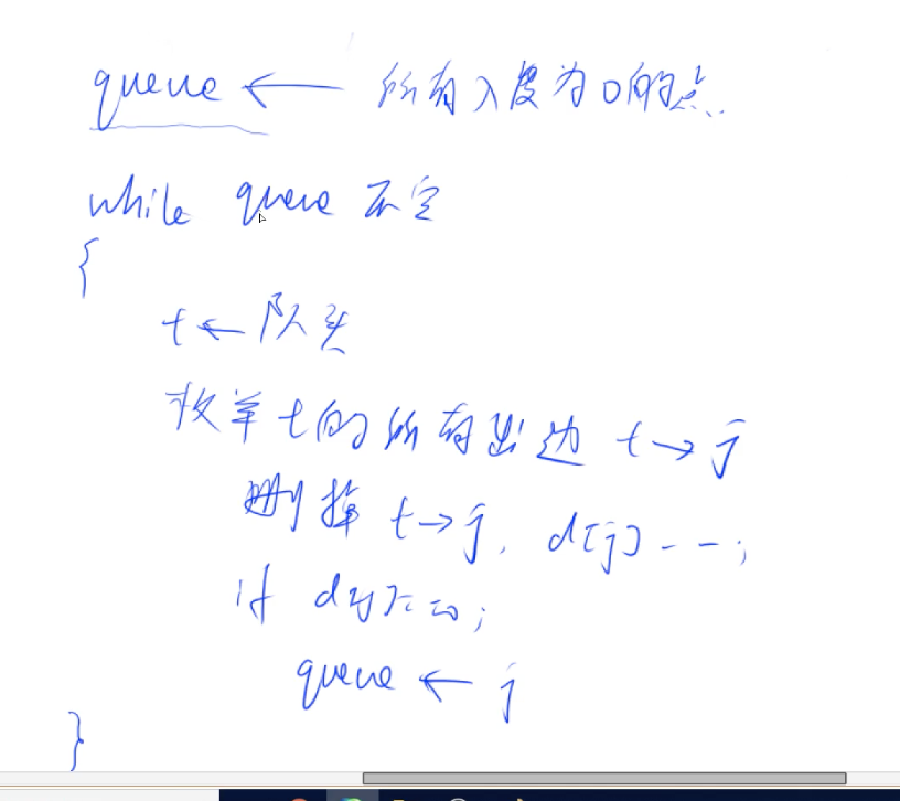 queue ← 所有入度为0的点.
while queue 不空
{
t ← 队头
枚举 t 的所有出边 t → j
删掉 t → j, d[j]--;
if d[j]==0;
queue ← j
}